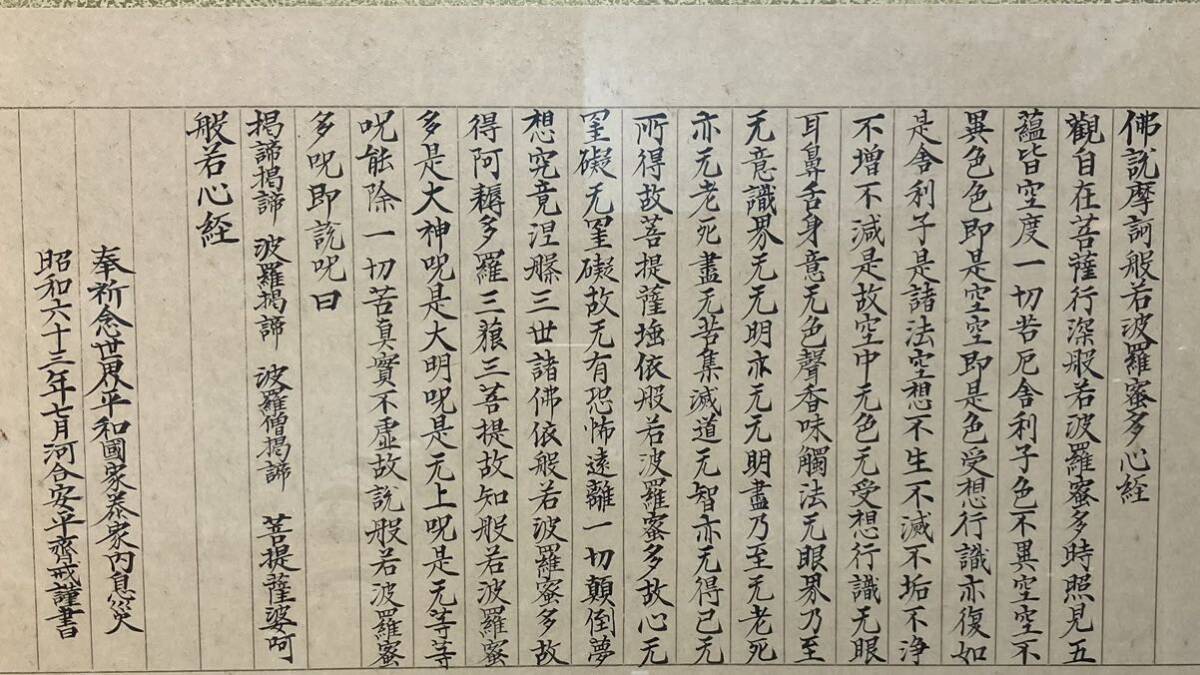 佛說摩訶般若波羅蜜多心経
觀自在菩薩行深般若波羅蜜多時照見五
蘊皆空度一切苦厄舍利子色不異空空不
異色色即是空空即是色受想行識亦復如
是舍利子是諸法空想不生不滅不垢不浄
不增不減是故空中无色无受想行識无眼
耳鼻舌身意无色聲香味觸法无眼界乃至
无意識界无无明亦无无明盡乃至无老死
亦无老死盡无苦集滅道无智亦无得已无
所得故菩提薩埵依般若波羅蜜多故心无
罣礙无罣礙故无有恐怖遠離一切顛倒夢
想究竟涅槃三世諸佛依般若波羅蜜多故
得阿耨多羅三藐三菩提故知般若波羅蜜
多是大神呪是大明呪是无上呪是无等等
呪能除一切苦真實不虛故說般若波羅蜜
多呪即說呪曰
揭諦揭諦 波羅揭諦 波羅僧揭諦 菩提薩婆呵
般若心経
奉祈念世界平和國家泰家內息災
昭和六十三年七月河合安平齋戒謹書